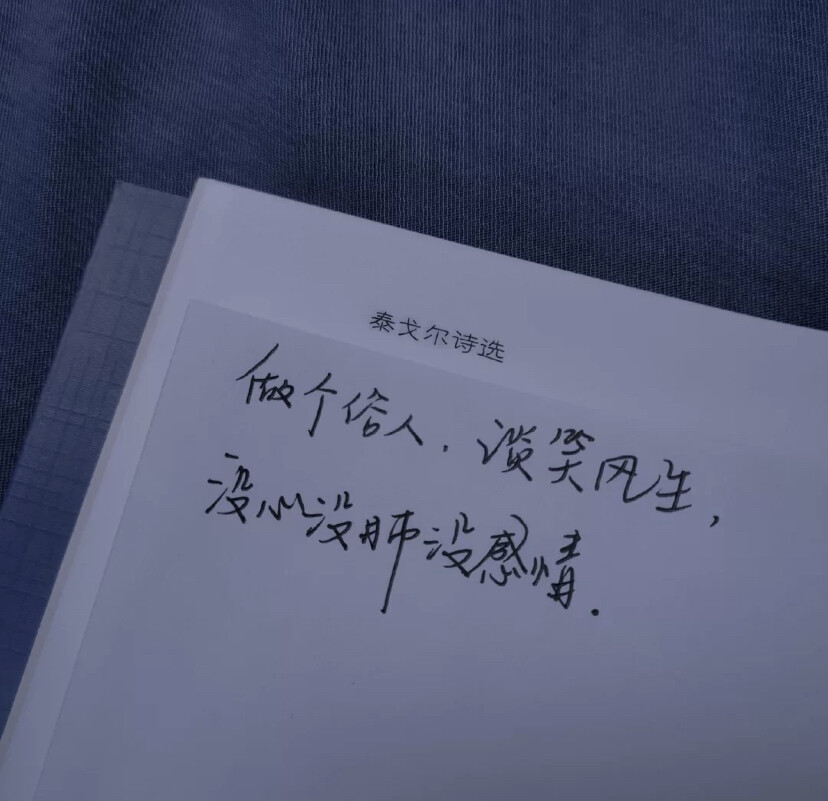 泰戈尔诗选
做个俗人，谈笑风生，
没心没肺没感情.